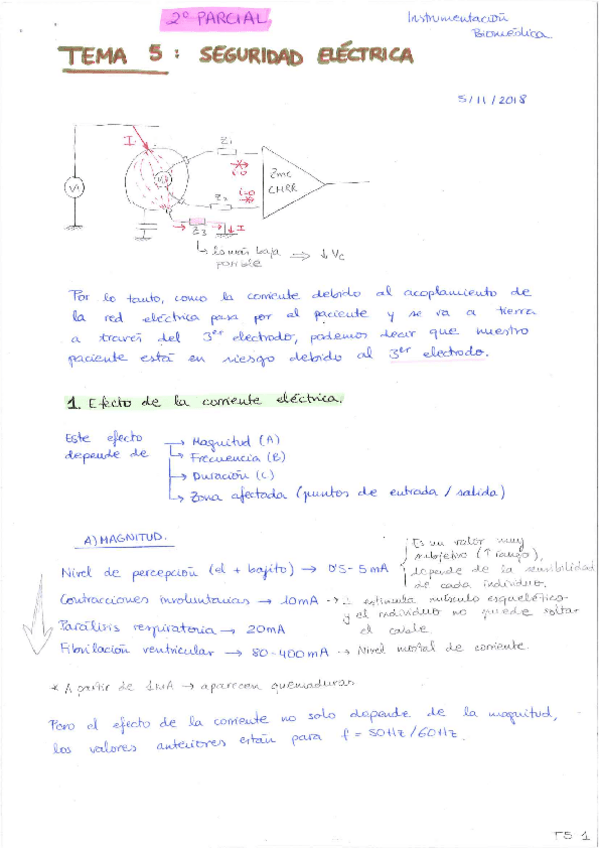 2º PARCIAL
Instrumentación
Biomédica
TEMA 5: SEGURIDAD ELÉCTRICA
5/11/2018
I
Z1
i=0
V
Zmc
CMRR
i=0
Z2
Z3
I
Es más baja
posible ⇒ ↓ Vc
Por lo tanto, como la corriente debido al acoplamiento de
la red eléctrica pasa por al paciente y se va a tierra
a través del 3er electrodo, podemos decir que nuestro
paciente está en riesgo debido al 3er electrodo.
1. Efecto de la corriente eléctrica.
Este efecto
depende de
→ Magnitud (A)
→ Frecuencia (B)
→ Duración (C)
→ Zona afectada (puntos de entrada / salida)
A) MAGNITUD.
Nivel de percepción (el + bajito) → 0'5-5mA
Es un valor muy
subjetivo (↑ rango),
depende de la sensibilidad
de cada individuo.
Contracciones involuntarias → 10mA → estimula músculo esquelético
y el individuo no puede soltar
el cable.
Parálisis respiratoria → 20mA
Fibrilación ventricular → 80-400mA → Nivel mortal de corriente.
* A partir de 1MA → aparecen quemaduras
Pero el efecto de la corriente no solo depende de la magnitud,
los valores anteriores están para f = 50Hz/60Hz.
T5 1